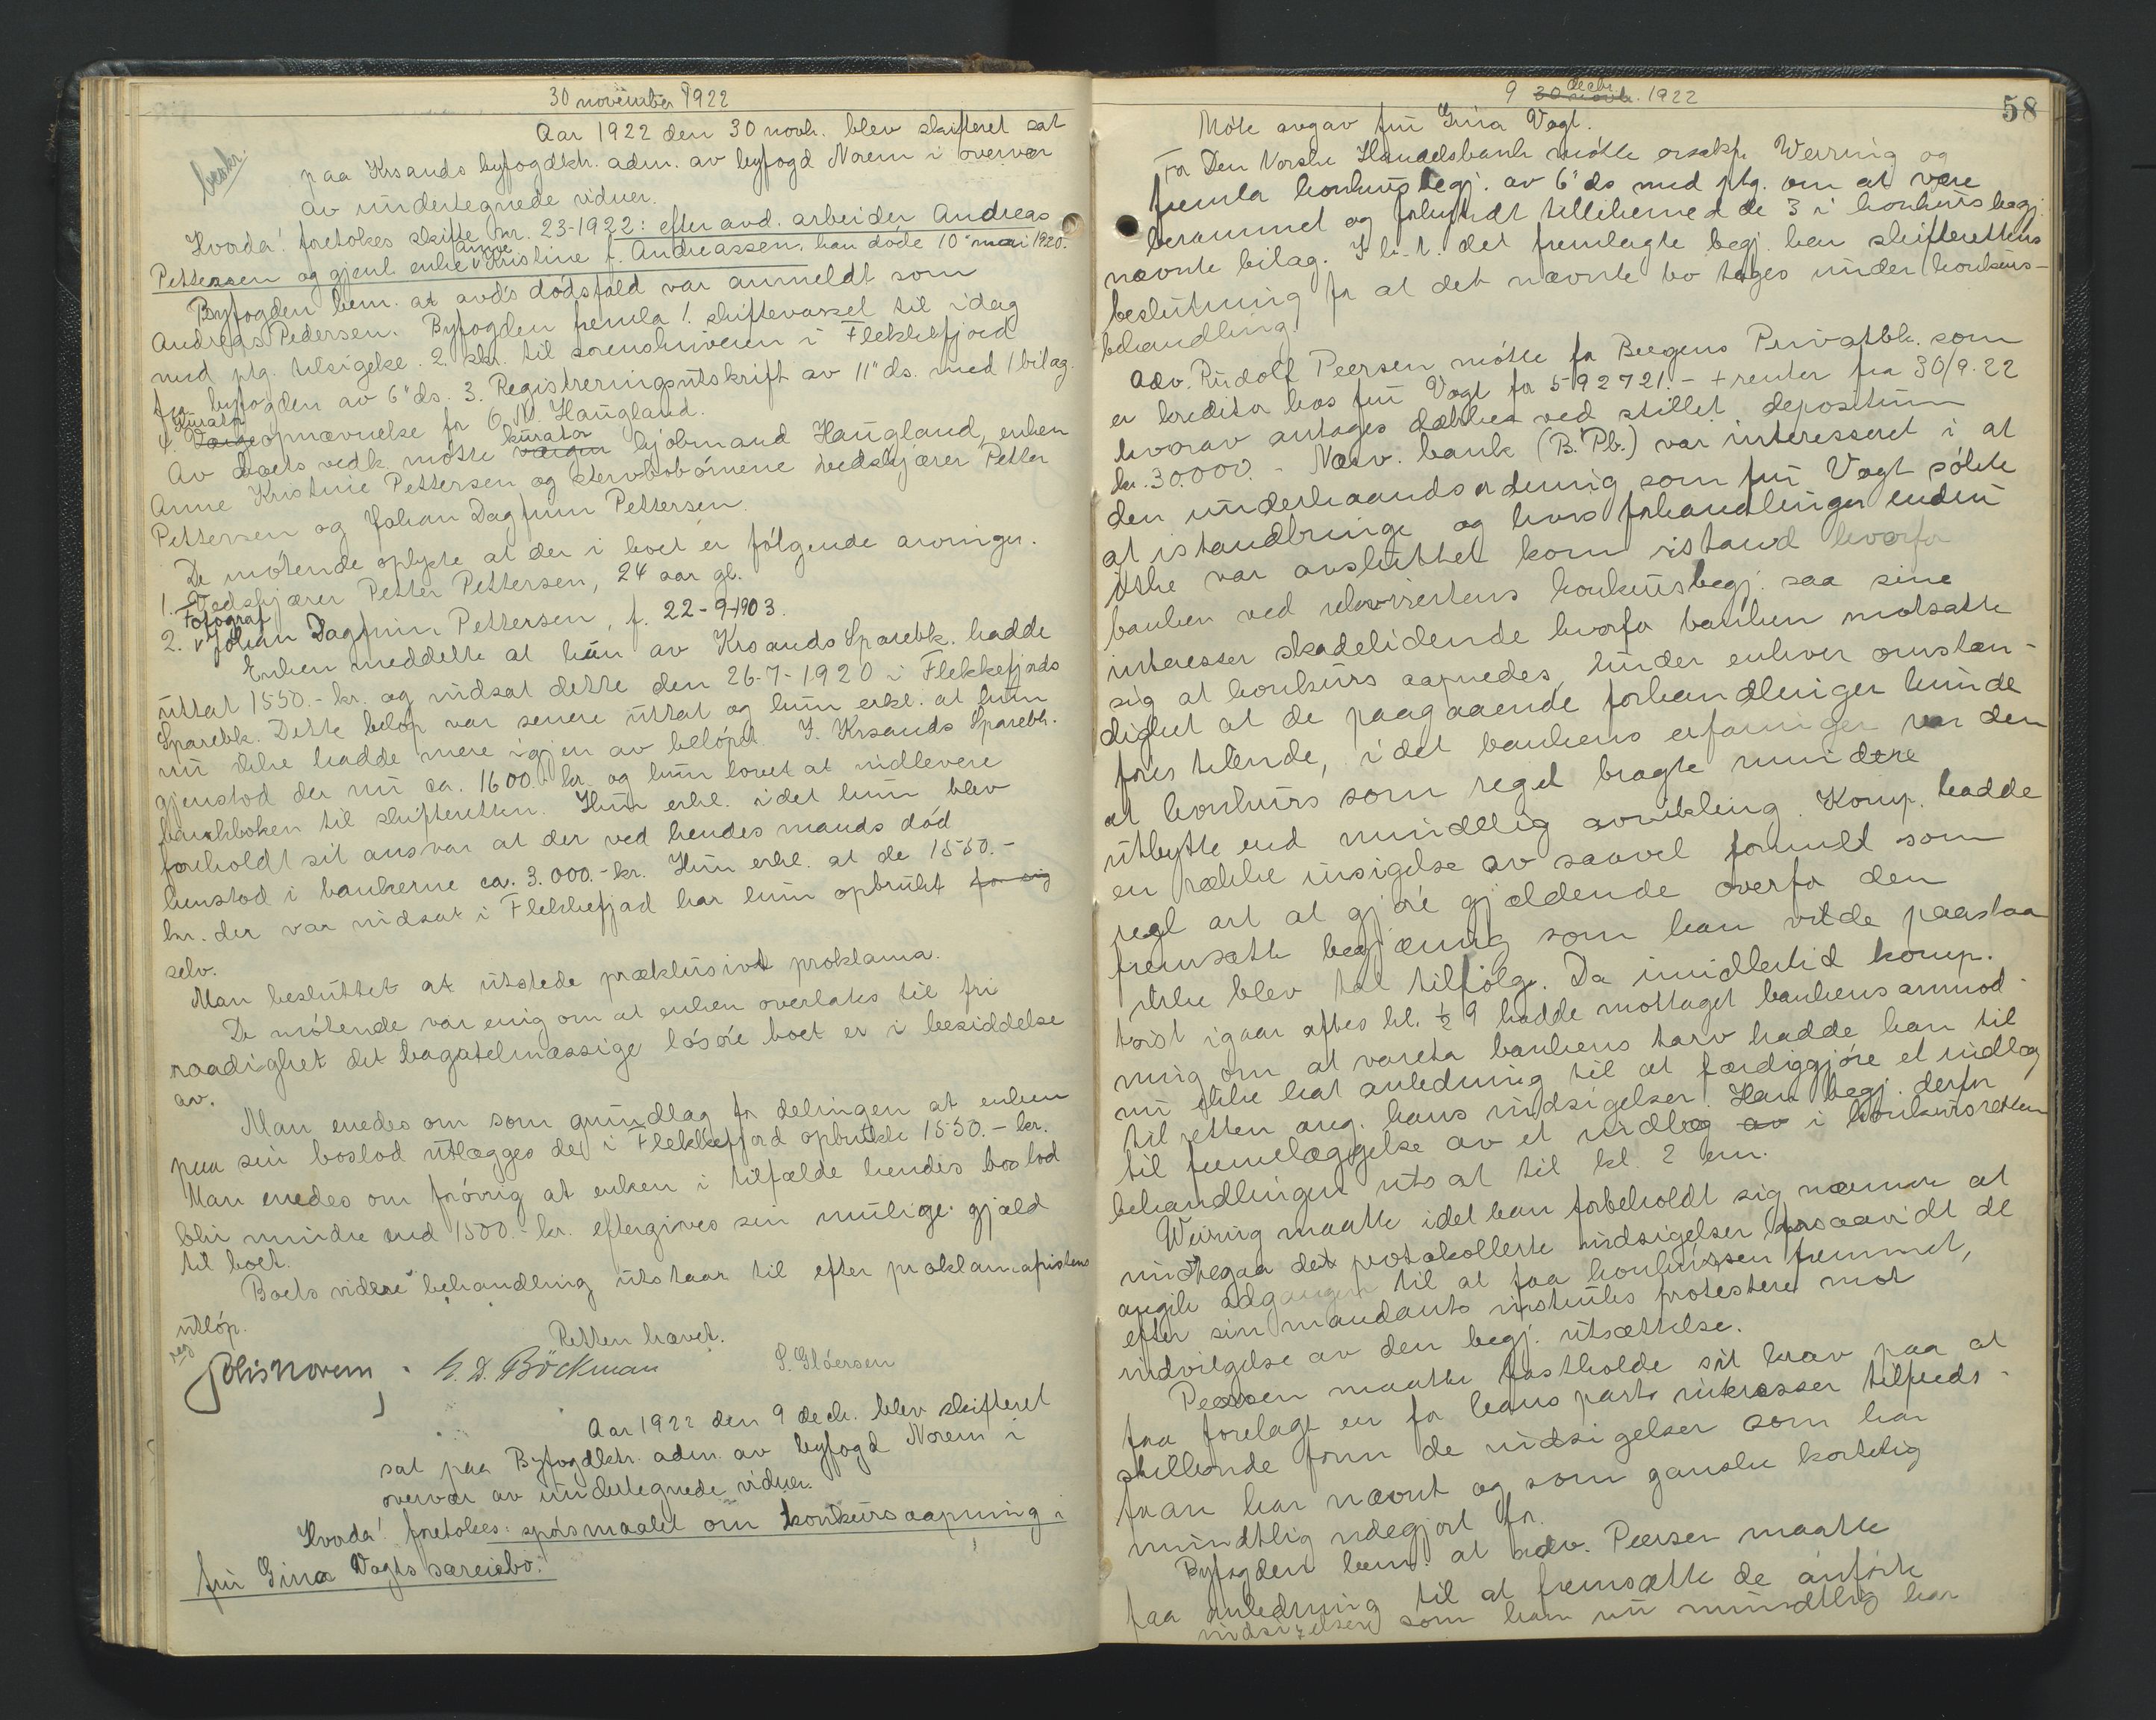 30 november 1922
Aar 1922 den 30 novb. blev skifteret sat
paa Krsands byfogdktr. adm. av byfogd Norem i overvær
av undertegnede vidner.
beskr.
Hvorda! foretokes skifte nr. 23-1922: efter avd. arbeider Andreas
Pettersen og gjenl. enke Anne Kristine f. Andreassen. han døde 10 mai 1920.
Byfogden bem. at avd's dødsfald var anmeldt som
Andreas Pedersen. Byfogden fremla 1. skiftevarsel til idag
med ptg. tilsigelse. 2. skr. til sorenskriveren i Flekkefjord
fra byfogden av 6" ds. 3. Registreringsutskrift av 11" ds. med 1 bilag.
4. Kurator opnævnelse for O. N. Haugland.
Av boets vedk. møtte værgen kurator kjøbmand Haugland, enken
Anne Kristine Pettersen og stervbobørnene vedskjærer Petter
Pettersen og Johan Dagfinn Pettersen.
De møtende oplyste at der i boet er følgende arvinger.
1. Vedskjærer Petter Pettersen, 24 aar gl.
2. Fotograf Johan Dagfinn Pettersen, f. 22-9-1903.
Enken meddelte at hun av Krsands Sparebk. hadde
uttat 1550.- kr. og indsat dette den 26-7-1920 i Flekkefjords
Sparebk. Dette beløp var senere uttat og hun erkl. at hun
nu ikke hadde mere igjen av beløpet. I Krsands Sparebk.
gjenstod der nu ca. 1600.- kr. og hun lovet at indlevere
bankboken til skifteretten. Hun erkl. idet hun blev
foreholdt sit ansvar at der ved hendes mands død
henstod i bankerne ca. 3.000.- kr. Hun erkl. at de 1550.-
kr. der var indsat i Flekkefjord har hun opbrukt for sig
selv.
Man besluttet at utstede præklusivt proklama.
De møtende var enig om at enken overlates til fri
raadighet det bagatelmæssige løsøre boet er i besiddelse
av.
Man enedes om som grundlag for delingen at enken
paa sin boslod utlægges de i Flekkefjord opbrukte 1550.- kr.
Man enedes om forøvrig at enken i tilfælde hendes boslod
blir mindre end 1500.- kr. eftergives sin mulige gjæld
til boet.
Boets videre behandling utstaar til efter proklamafristens
utløp.
Retten hævet.
Johs Norem. S. Gløersen
Aar 1922 den 9 decb. blev skifteret
sat paa Byfogdktr. adm. av byfogd Norem i
overvær av undertegnede vidner.
Hvorda! foretokes: spørsmaalet om konkursaapning i
fru Gina Vogts særeiebo.
9 30 novb. decbr. 1922
58
Møte avgav fru Gina Vogt.
For Den Norske Handelsbank møtte orsakf. Weiring og
fremla konkursbegj. av 6" ds med ptg. om at være
berammet og forkyndt tillikemed de 3 i konkursbegj.
nævnte bilag. I h. t. det fremlagte begj. han skifterettens
beslutning for at det nævnte bo tages under konkurs-
behandling.
Adv. Rudolf Peersen møtte for Bergens Privatbk. som
er kreditor hos fru Vogt for 592721.- + renter fra 30/9.22
hvorav antages dækket ved stillet depositum
kr. 30.000.- Nævn. bank (B. Pb.) var interesseret i at
den underhaandsordning som fru Vogt søkte
at istandbringe og hvis forhandlinger endnu
ikke var avsluttet kom istand hvorfor
banken ved rekvirentens konkursbegj. saa sine
interesser skadelidende hvorfor banken motsatte
sig at konkurs aapnedes, under enhver omstæn-
dighet at de paagaaende forhandlinger kunde
føres tilende, idet bankens erfaringer var den
at konkurs som regel bragte mindere
utbytte end mindelig avvikling. Komp. hadde
en række insigelse av saavel formelt som
regl art at gjøre gjældende overfor den
fremsatte begjæring som han vilde paastaa
ikke blev tat tilfølge. Da imidlertid komp.
først igaar aftes kl. ½ 9 hadde mottaget bankens anmod-
ning om at vareta bankens tarv hadde han til
nu ikke hat anledning til at færdiggjøre et indlæg
til retten ang. hans indsigelser. Han begj. derfor
til fremlæggelse av et indlæg av i konkursretten
behandlingen utsat til kl. 2 em.
Weiring maatte idet han forbeholdt sig nærmere at
imøtegaa det protokollerte indsigelser forsaavidt de
angik adgangen til at faa konkursen fremmet,
efter sin mandants instruks protestere mot
indvilgelse av den begj. utsættelse.
Peersen maatte fastholde sit krav paa at
faa forelagt en for hans parts interesser tilfreds-
stillende form de indsigelser som han
han har nævnt og som ganske kortelig
mundtlig redegjort for.
Byfogden bem. at adv. Peersen maatte
faa anledning til at fremsætte de anførte
indsigelser som han nu mundtlig har